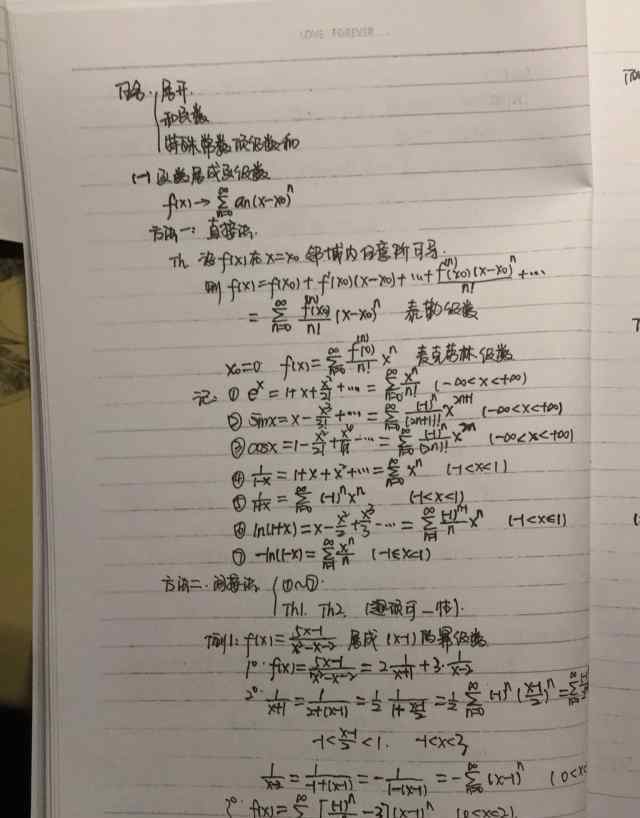 LOVE FOREVER...
展开
和函数
特殊常数项级数和
(一)函数展成幂级数
f(x)→∑_{n=0}^{∞} an(x-x0)^n
方法一:直接法.
Th. 设f(x)在x=x0邻域内任意阶可导.
则 f(x)=f(x0)+f'(x0)(x-x0)+…+f^{(n)}(x0)(x-x0)^n/n!+…
=∑_{n=0}^{∞} f^{(n)}(x0)/n! (x-x0)^n 泰勒级数
x0=0 f(x)=∑_{n=0}^{∞} f^{(n)}(0)/n! x^n 麦克劳林级数
记:① e^x=1+x+x^2/2!+…=∑_{n=0}^{∞} x^n/n! (-∞<x<+∞)
② sinx=x-x^3/3!+…=∑_{n=0}^{∞} (-1)^n/(2n+1)! x^{2n+1} (-∞<x<+∞)
③ cosx=1-x^2/2!+x^4/4!-…=∑_{n=0}^{∞} (-1)^n/(2n)! x^{2n} (-∞<x<+∞)
④ 1/(1-x)=1+x+x^2+…=∑_{n=0}^{∞} x^n (-1<x<1)
⑤ 1/(1+x)=∑_{n=0}^{∞} (-1)^n x^n (-1<x<1)
⑥ ln(1+x)=x-x^2/2+x^3/3-…=∑_{n=1}^{∞} (-1)^{n-1}/n x^n (-1<x≤1)
⑦ -ln(1-x)=∑_{n=1}^{∞} x^n/n (-1≤x<1)
方法二.间接法 ①~⑦.
Th1. Th2. (逐项可一性).
例1: f(x)=(5x-1)/(x^2-x-2) 展成(x-1)的幂级数
1°. f(x)=(5x-1)/(x^2-x-2)=2·1/(x+1)+3·1/(x-2)
2°. 1/(x+1)=1/(2+(x-1))=1/2·1/(1+(x-1)/2)=1/2∑_{n=0}^{∞} (-1)^n((x-1)/2)^n=∑
-1<(x-1)/2<1. -1<x<3
1/(x-2)=1/(-1+(x-1))=-1/(1-(x-1))=-∑_{n=0}^{∞} (x-1)^n (0<x<
3°. f(x)=∑^{∞} [(-1)^n/2^n-3](x-1)^n (0<x<2).